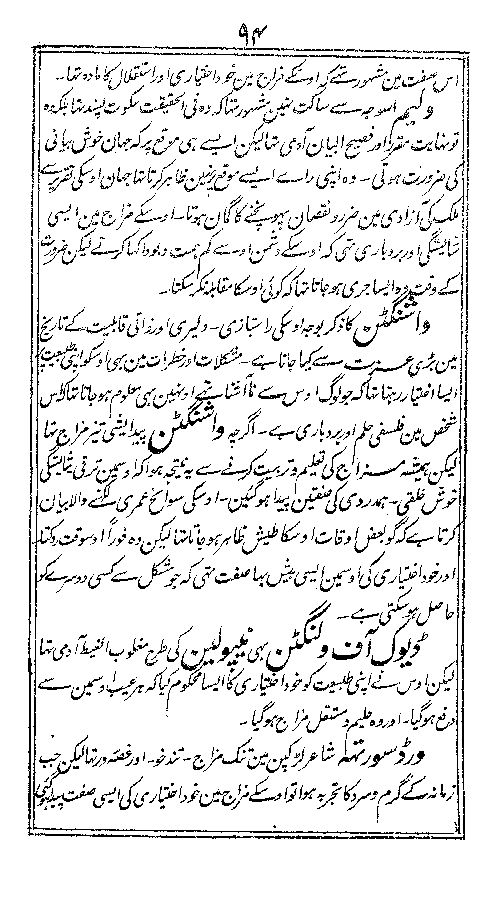 ۹۴
اس صفت مین مشہور تھے کہ اوسکے مزاج مین خود اختیاری اور استقلال کا مادہ تھا۔
ولیم اسوجہ سے ساکت نہین مشہور تھا کہ وہ فی الحقیقت سکوت پسند تھا بلکہ وہ
تو نہایت مقرر اور فصیح البیان آدمی تھا لیکن ایسے ہی موقع پر کہ جہان خوش بیانی
کی ضرورت ہوتی۔ وہ اپنی راے ایسے موقع پر نہین ظاہر کرتا تھا جہان اوسکی تقریر سے
ملک کی آزادی مین ضرر و نقصان پہونچنے کا گمان ہوتا۔ اوسکے مزاج مین ایسی
شایستگی اور بردباری تھی کہ اوسکے دشمن اوسے کم ہمت و بودا کہا کرتے لیکن ضرورت
کے وقت وہ ایسا جری ہوجاتا تھا کہ کوئی اوسکا مقابلہ نکرسکتا۔
واشنگٹن کا ذکر بوجہ اوسکی راستبازی۔ دلیری اور ذاتی قابلیت کے تاریخ
مین بڑی عزت سے کیا جاتا ہے۔ مشکلات اور خطرات مین بھی اوسکو اپنی طبیعت پر
ایسا اختیار رہتا تھا کہ جو لوگ اوس سے ناآشنا تھے اونہین یہی معلوم ہوجاتا تھا کہ اس
شخص مین فلسفی حلم اور بردباری ہے۔ اگرچہ واشنگٹن پیدایشی تیز مزاج تھا
لیکن ہمیشہ مزاج کی تعلیم و تربیت کرنے سے یہ نتیجہ ہوا کہ اوسمین ترقی شایستگی
خوش خلقی۔ ہمدردی کی صفتین پیدا ہوگئین۔ اوسکی سوانح عمری لکھنے والا بیان
کرتا ہے کہ گو بعض اوقات اوسکا طیش ظاہر ہوجاتا تھا لیکن وہ فوراً اوسوقت روکتا
اور خود اختیاری کی اوسمین ایسی بیش بہا صفت تھی کہ جو مشکل سے کسی دوسرے کو
حاصل ہوسکتی ہے۔
ڈیوک آف ولنگٹن بھی نیپولین کی طرح مغلوب الغیظ آدمی تھا
لیکن اوس نے اپنی طبیعت کو خود اختیاری کا ایسا محکوم کیا کہ ہر عیب اوسمین سے
رفع ہوگیا۔ اور وہ حلیم و مستقل مزاج ہوگیا۔
ورڈسورتھ شاعر لڑکپن مین تنک مزاج۔ تندخو۔ اور غصہ ور تھا لیکن جب
زمانہ کے گرم و سرد کا تجربہ ہوا تو اوسکے مزاج مین خود اختیاری کی ایسی صفت پیدا ہوگئی